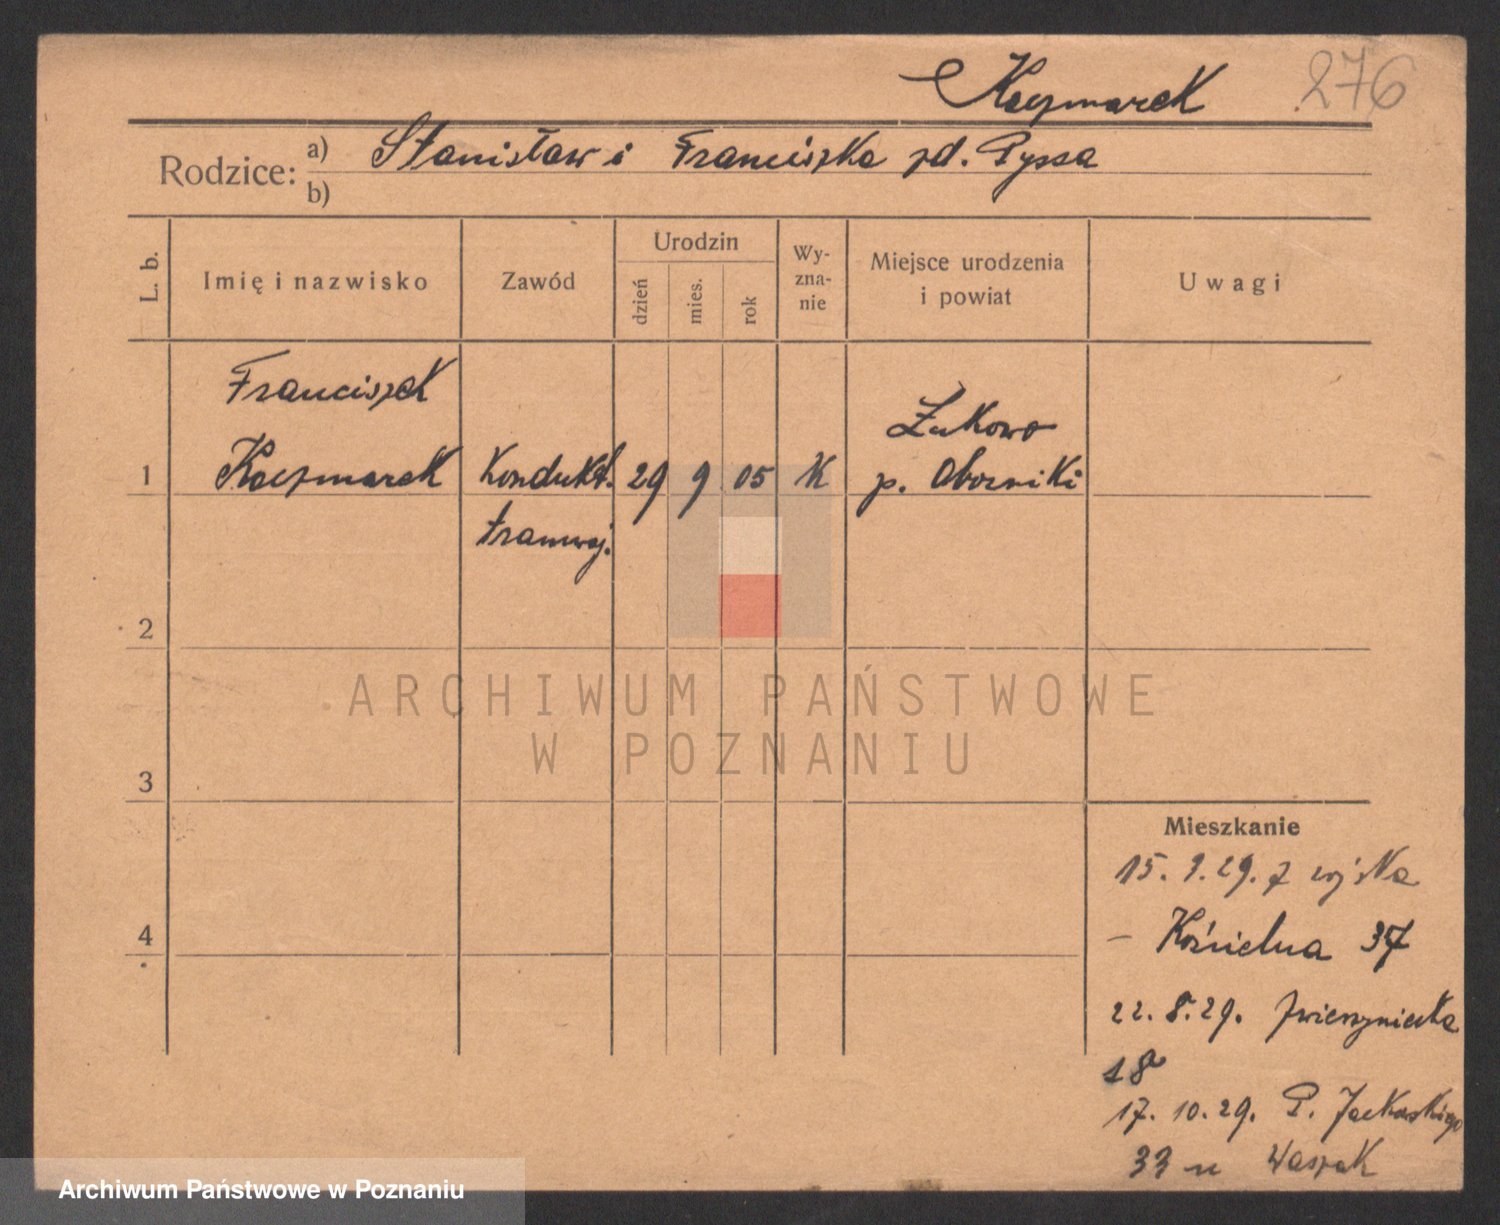 Kaczmarek 276
Rodzice: a) Stanisław i Franciszka zd. Pyssa
b)
L. b. Imię i nazwisko Zawód Urodzin dzień mies. rok Wyznanie Miejsce urodzenia i powiat Uwagi
Franciszek Żukowo
1 Kaczmarek Kondukt. 29 9 05 K p. Oborniki
tramwaj.
2
ARCHIWUM PAŃSTWOWE
W POZNANIU
3
Mieszkanie
15. 9. 29. z wojska
4 – Kościelna 37
22. 8. 29. Zwierzyniecka
18
17. 10. 29. P. Jackowskiego
33 u
Archiwum Państwowe w Poznaniu